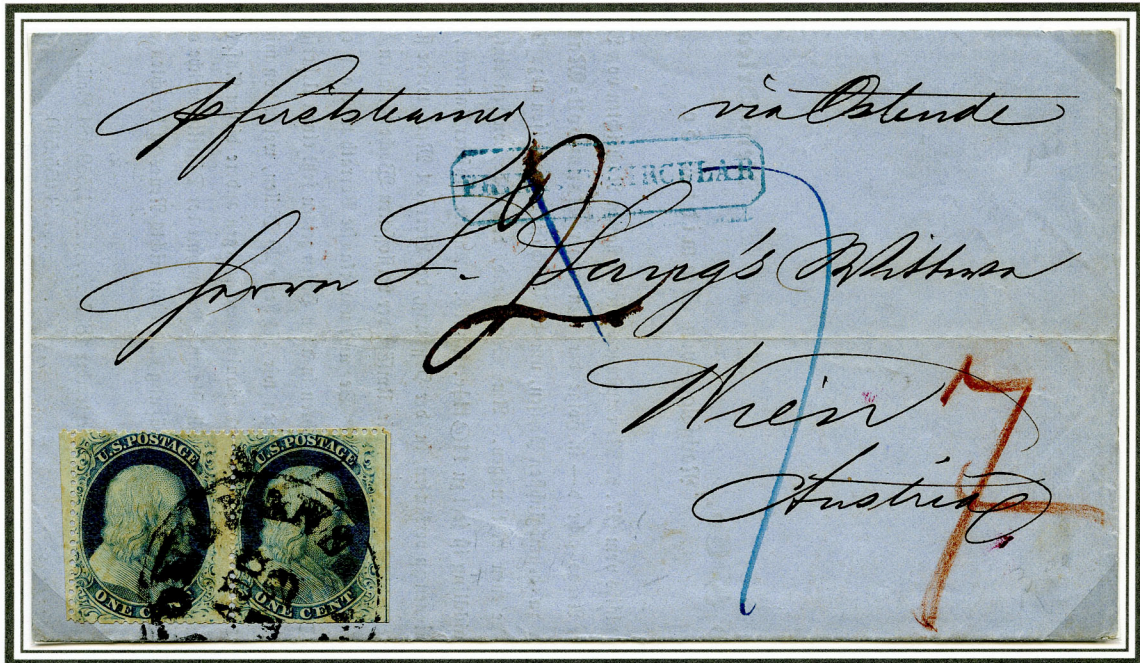 p first steamer via Ostende
PRINTED CIRCULAR
2
7
Herrn L. Lang's Wittwe
Wien
Austria
7
U.S. POSTAGE U.S. POSTAGE
ONE CENT ONE CENT